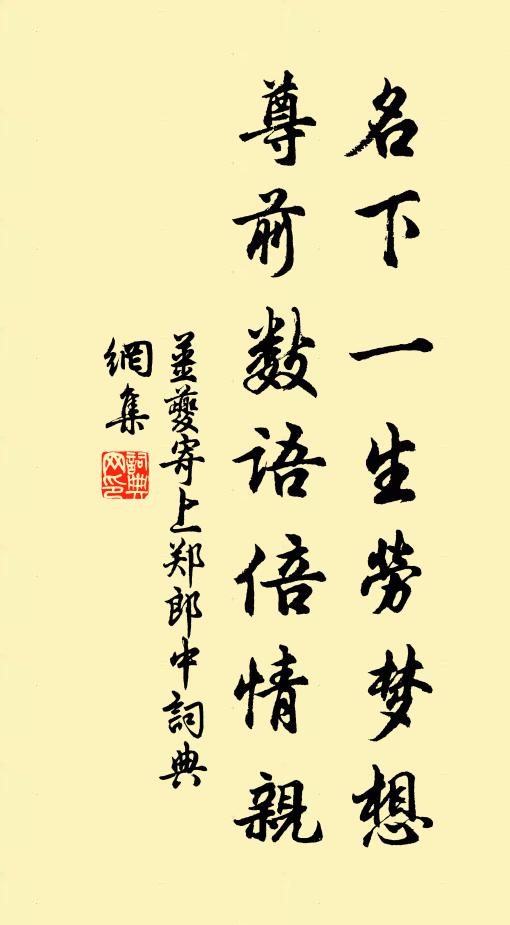 名下一生劳梦想
尊前数语倍情親
姜夔寄上郑郎中詞典
網集
詞典網印